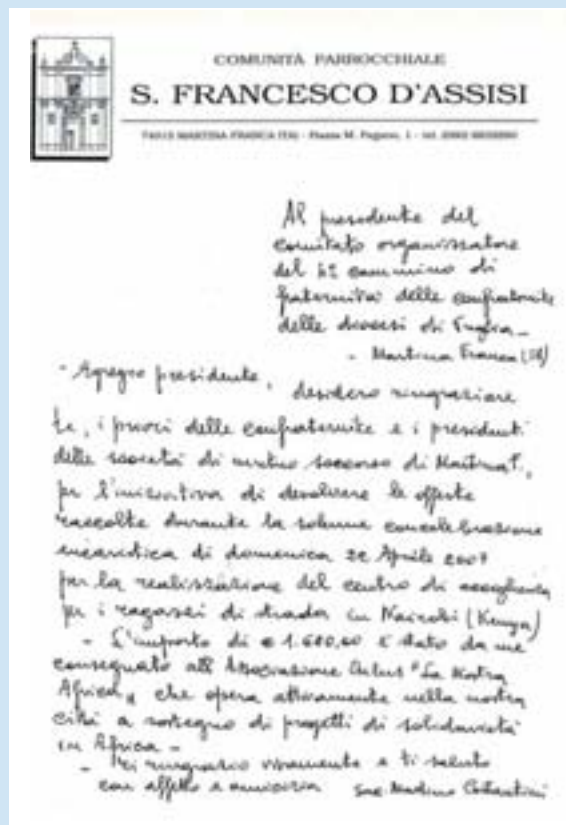 COMUNITÀ PARROCCHIALE
S. FRANCESCO D'ASSISI
74015 MARTINA FRANCA (TA) - Piazza M. Pagano, 1 - tel.
Al presidente del
comitato organizzatore
del cammino di
fraternità delle confraternite
delle diocesi di Puglia -
- Martina Franca (TA)
- Egregio presidente,
desidero ringraziare
te, i priori delle confraternite e i presidenti
delle società di mutuo soccorso di Martina F.,
per l'iniziativa di devolvere le offerte
raccolte durante la solenne concelebrazione
eucaristica di domenica 22 Aprile 2007
per la realizzazione del centro di accoglienza
per i ragazzi di strada in Nairobi (Kenya)
- L'importo di € 1.680,00 è stato da me
consegnato all'Associazione Onlus "La Nostra
Africa" che opera attivamente nella nostra
città a sostegno di progetti di solidarietà
in Africa -
- Ti ringrazio vivamente e ti saluto
con affetto e amicizia sac. Martino